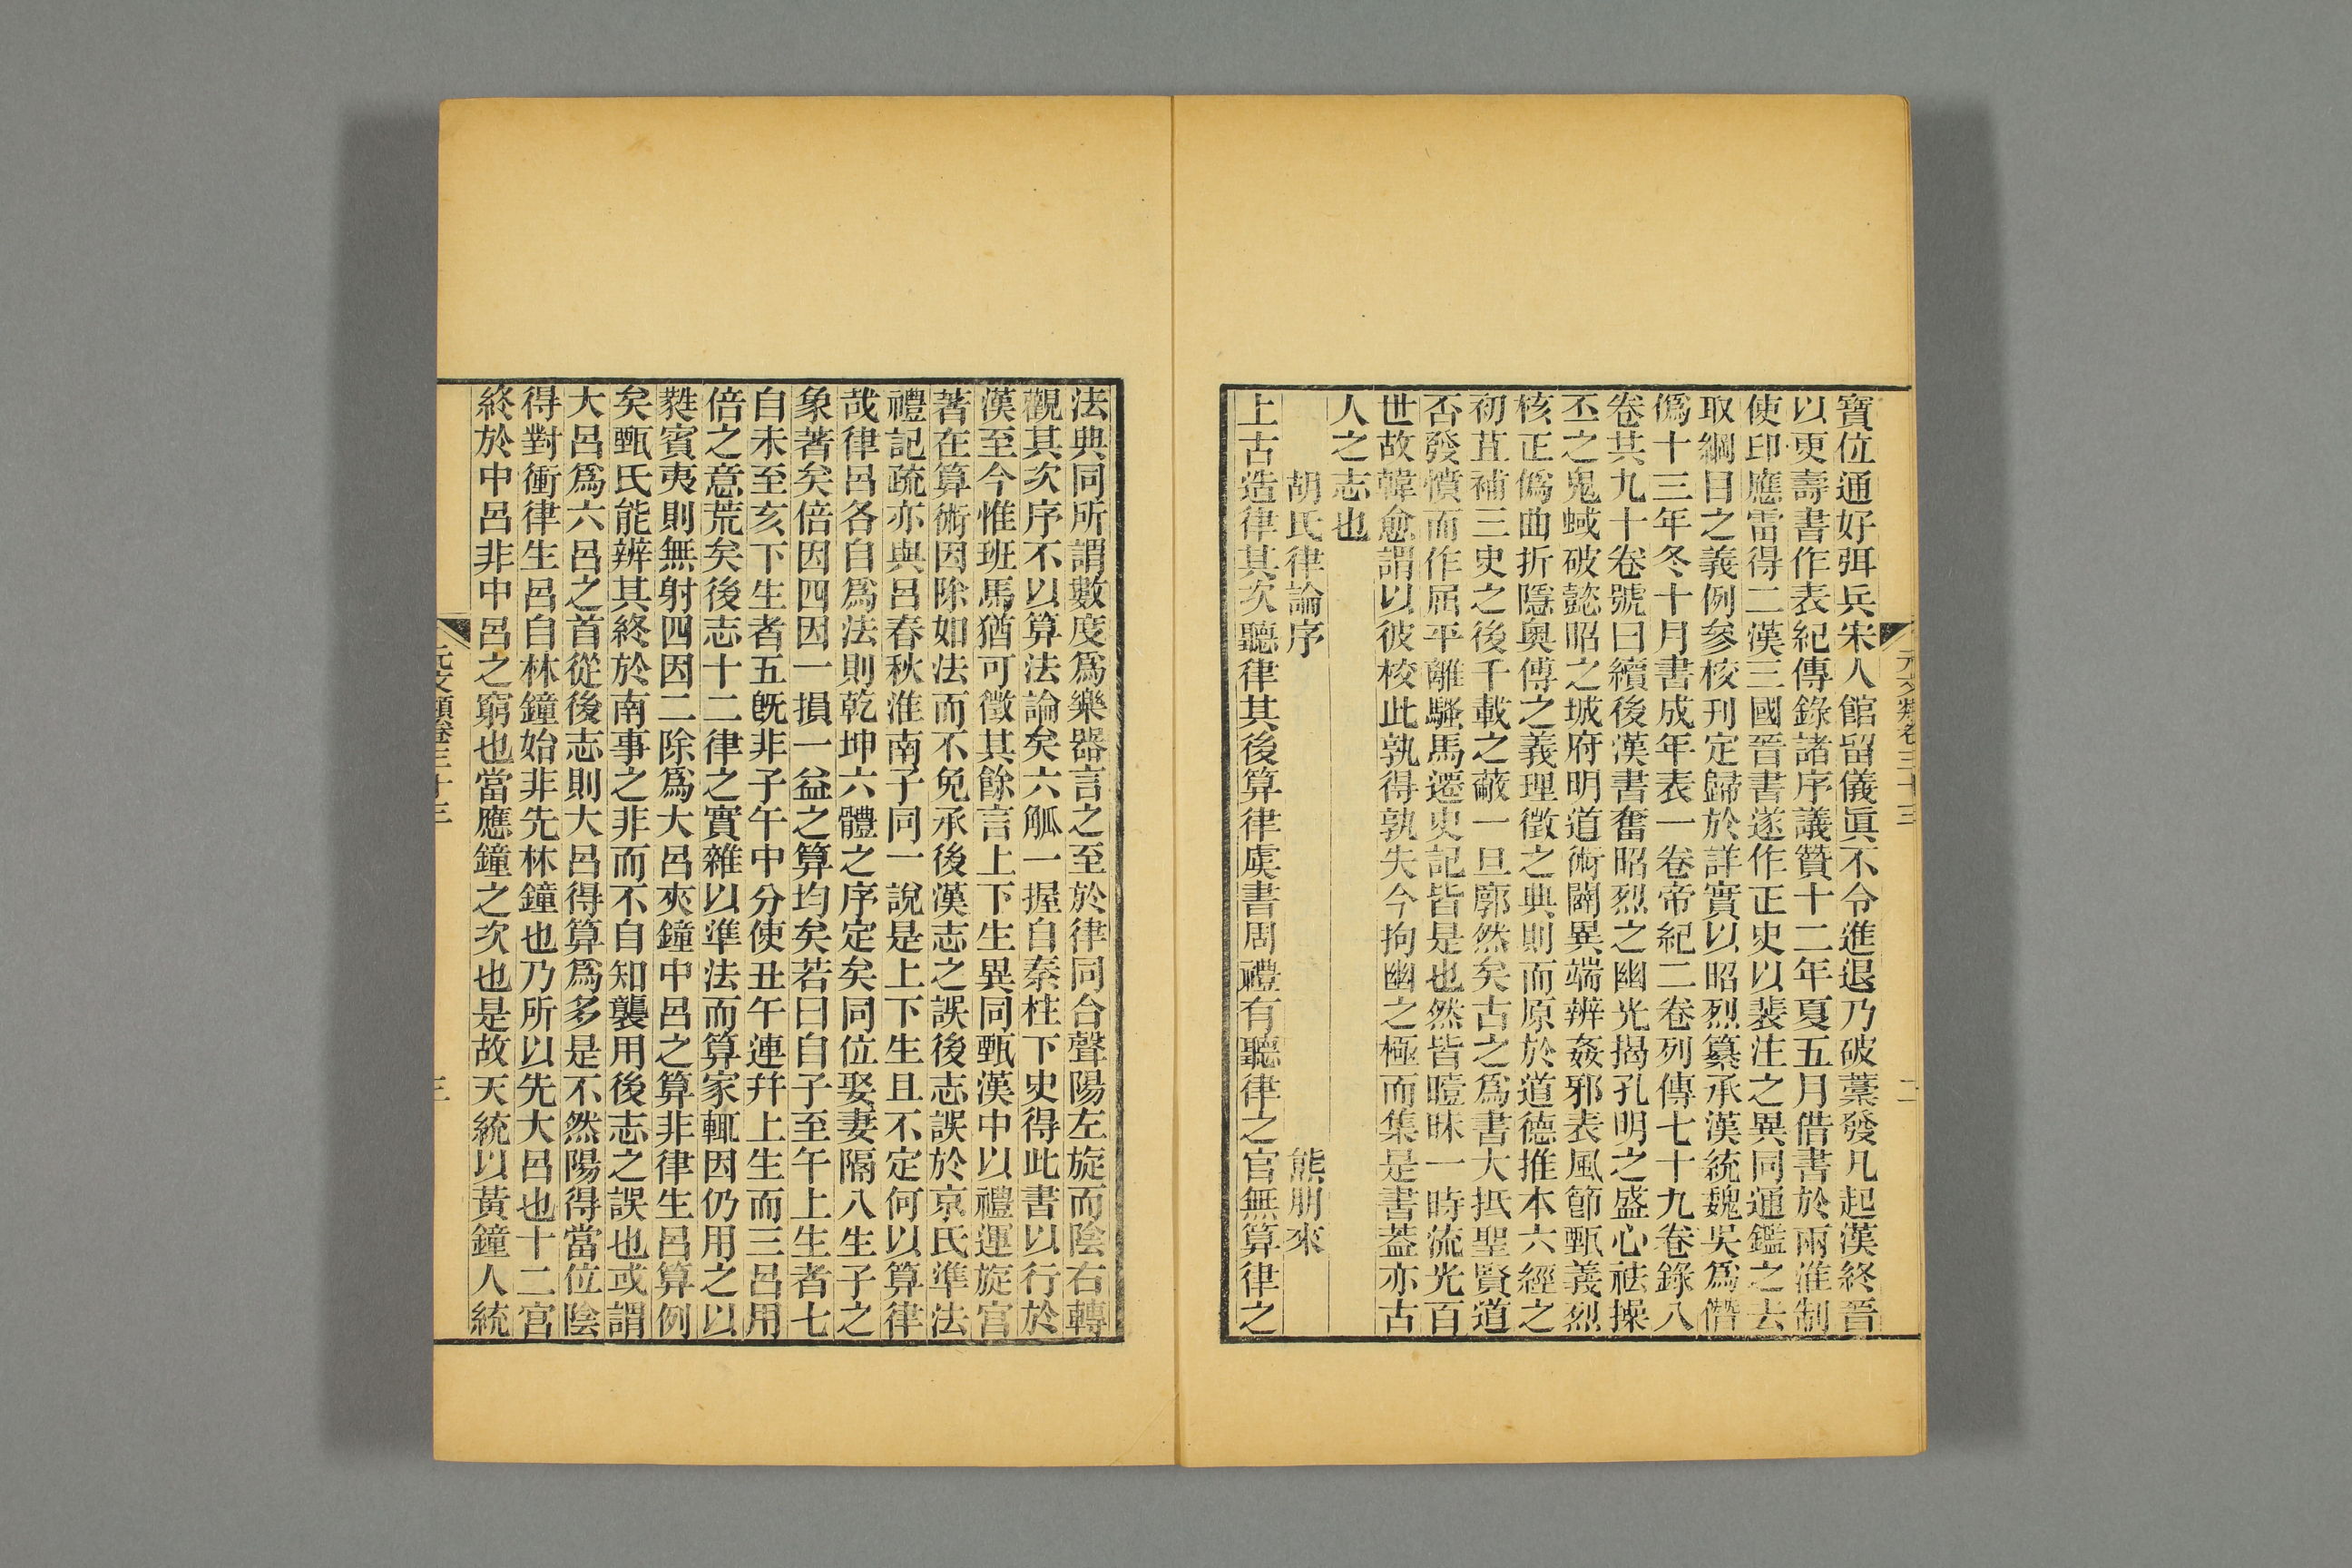 元文類卷三十三 二
寶位通好弭兵宋人館留儀眞不令進退乃破藁發凡起漢終晉
以更壽書作表紀傳錄諸序議贊十二年夏五月借書於兩淮制
使印應雷得二漢三國晉書遂作正史以裴注之異同通鑑之去
取綱目之義例參校刊定歸於詳實以昭烈纂承漢統魏吳爲僭
僞十三年冬十月書成年表一卷帝紀二卷列傳七十九卷錄八
卷共九十卷號曰續後漢書奮昭烈之幽光揭孔明之盛心祛操
丕之鬼蜮破懿昭之城府明道術闢異端辨姦邪表風節甄義烈
核正僞曲折隱奧傅之義理徵之典則而原於道德推本六經之
初苴補三史之後千載之蔽一旦廓然矣古之爲書大抵聖賢道
否發憤而作屈平離騷馬遷史記皆是也然皆曀昧一時流光百
世故韓愈謂以彼校此孰得孰失今拘幽之極而集是書葢亦古
人之志也
胡氏律論序 熊朋來
上古造律其次聽律其後算律虞書周禮有聽律之官無算律之
法典同所謂數度爲樂器言之至於律同合聲陽左旋而陰右轉
觀其次序不以算法論矣六觚一握自秦柱下史得此書以行於
漢至今惟班馬猶可徵其餘言上下生異同甄漢中以禮運旋宮
著在算術因除如法而不免承後漢志之誤後志誤於京氏準法
禮記疏亦與呂春秋淮南子同一說是上下生且不定何以算律
哉律呂各自爲法則乾坤六體之序定矣同位娶妻隔八生子之
象著矣倍因四因一損一益之算均矣若曰自子至午上生者七
自未至亥下生者五旣非子午中分使丑午連幷上生而三呂用
倍之意荒矣後志十二律之實雜以準法而算家輒因仍用之以
蕤賓夷則無射四因二除爲大呂夾鐘中呂之算非律生呂算例
矣甄氏能辨其終於南事之非而不自知襲用後志之誤也或謂
大呂爲六呂之首從後志則大呂得算爲多是不然陽得當位陰
得對衝律生呂自林鐘始非先林鐘也乃所以先大呂也十二宮
終於中呂非中呂之窮也當應鐘之次也是故天統以黃鐘人統
元文類卷三十三 三